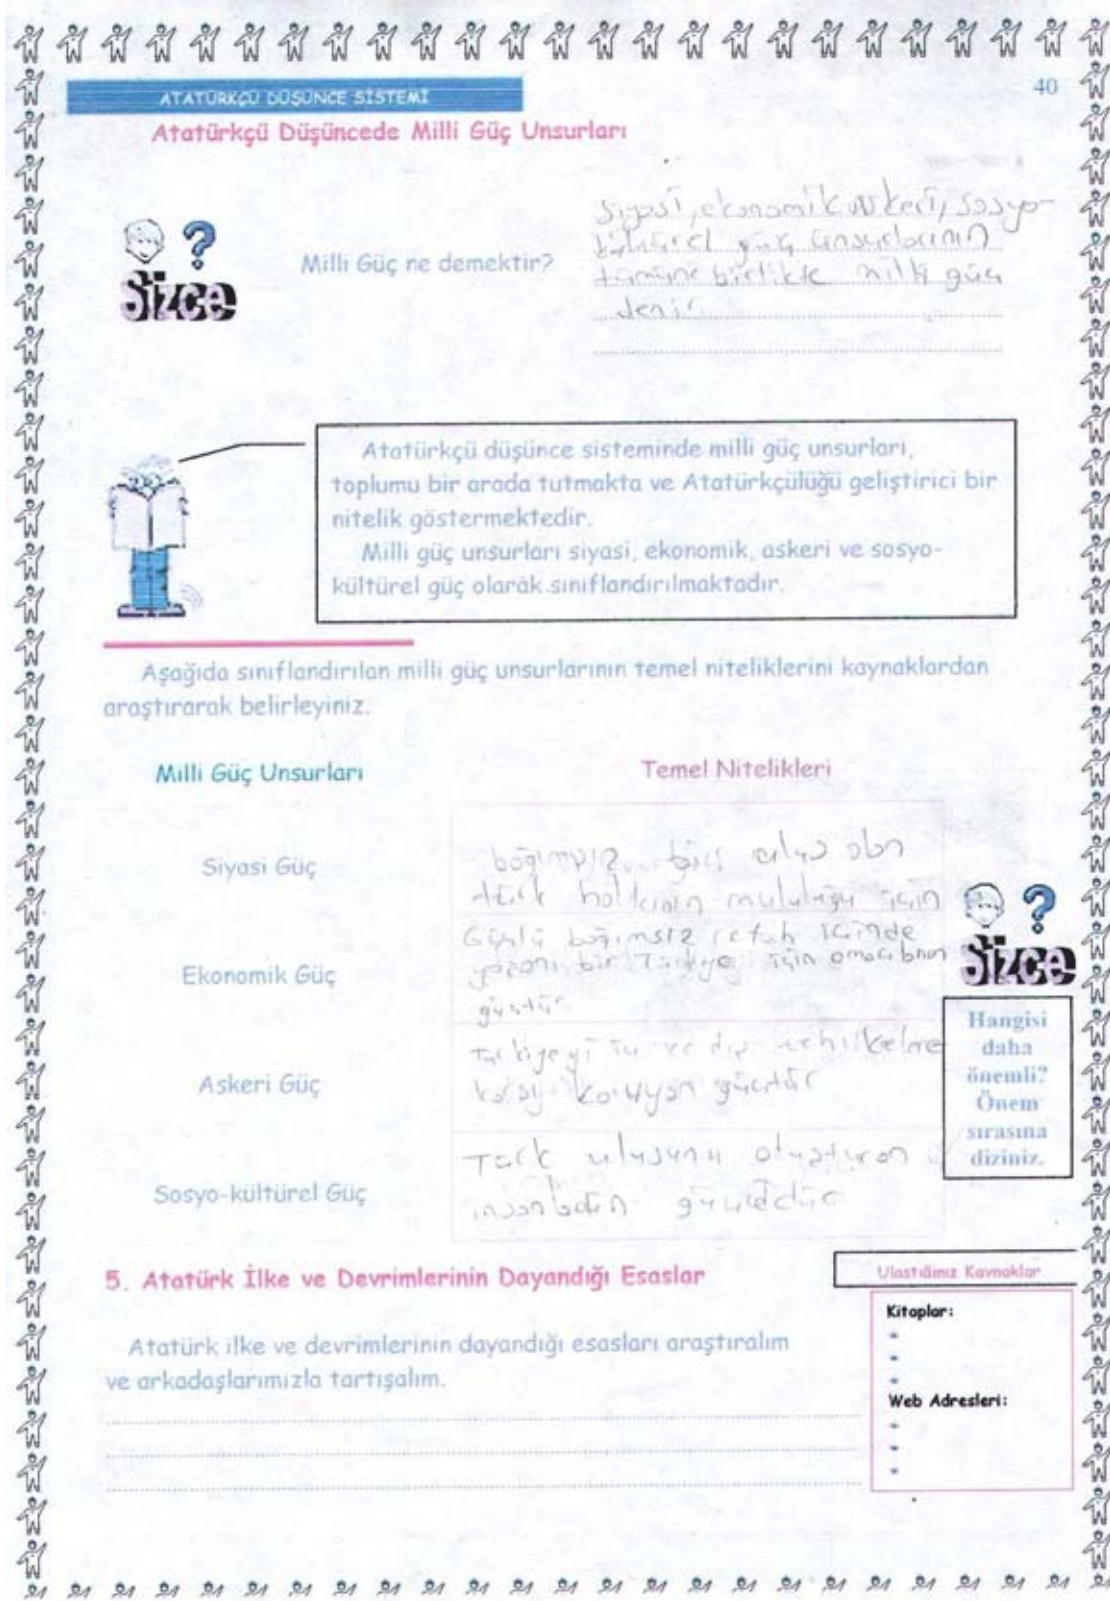 ATATÜRKÇÜ DÜŞÜNCE SİSTEMİ
40
Atatürkçü Düşüncede Milli Güç Unsurları
Sizce
Milli Güç ne demektir?
Siyasi, ekonomik, Askeri, Sosyo-
kültürel güç unsurlarının
tümüne birlikte milli güç
denir
Atatürkçü düşünce sisteminde milli güç unsurları,
toplumu bir arada tutmakta ve Atatürkçülüğü geliştirici bir
nitelik göstermektedir.
Milli güç unsurları siyasi, ekonomik, askeri ve sosyo-
kültürel güç olarak sınıflandırılmaktadır.
Aşağıda sınıflandırılan milli güç unsurlarının temel niteliklerini kaynaklardan
araştırarak belirleyiniz.
Milli Güç Unsurları
Temel Nitelikleri
Siyasi Güç
bağımsız olan
türk halkının için
Ekonomik Güç
Güçlü bağımsız refah içinde
bir için
güçtür
Askeri Güç
Türkiyeyi iç ve dış tehlikelere
karşı koruyan güçtür
Sosyo-kültürel Güç
Türk ulusunu oluşturan
insanların gücüdür
Sizce
Hangisi
daha
önemli?
Önem
sırasına
diziniz.
5. Atatürk İlke ve Devrimlerinin Dayandığı Esaslar
Atatürk ilke ve devrimlerinin dayandığı esasları araştıralım
ve arkadaşlarımızla tartışalım.
Ulaştığınız Kaynaklar
Kitaplar:
Web Adresleri: